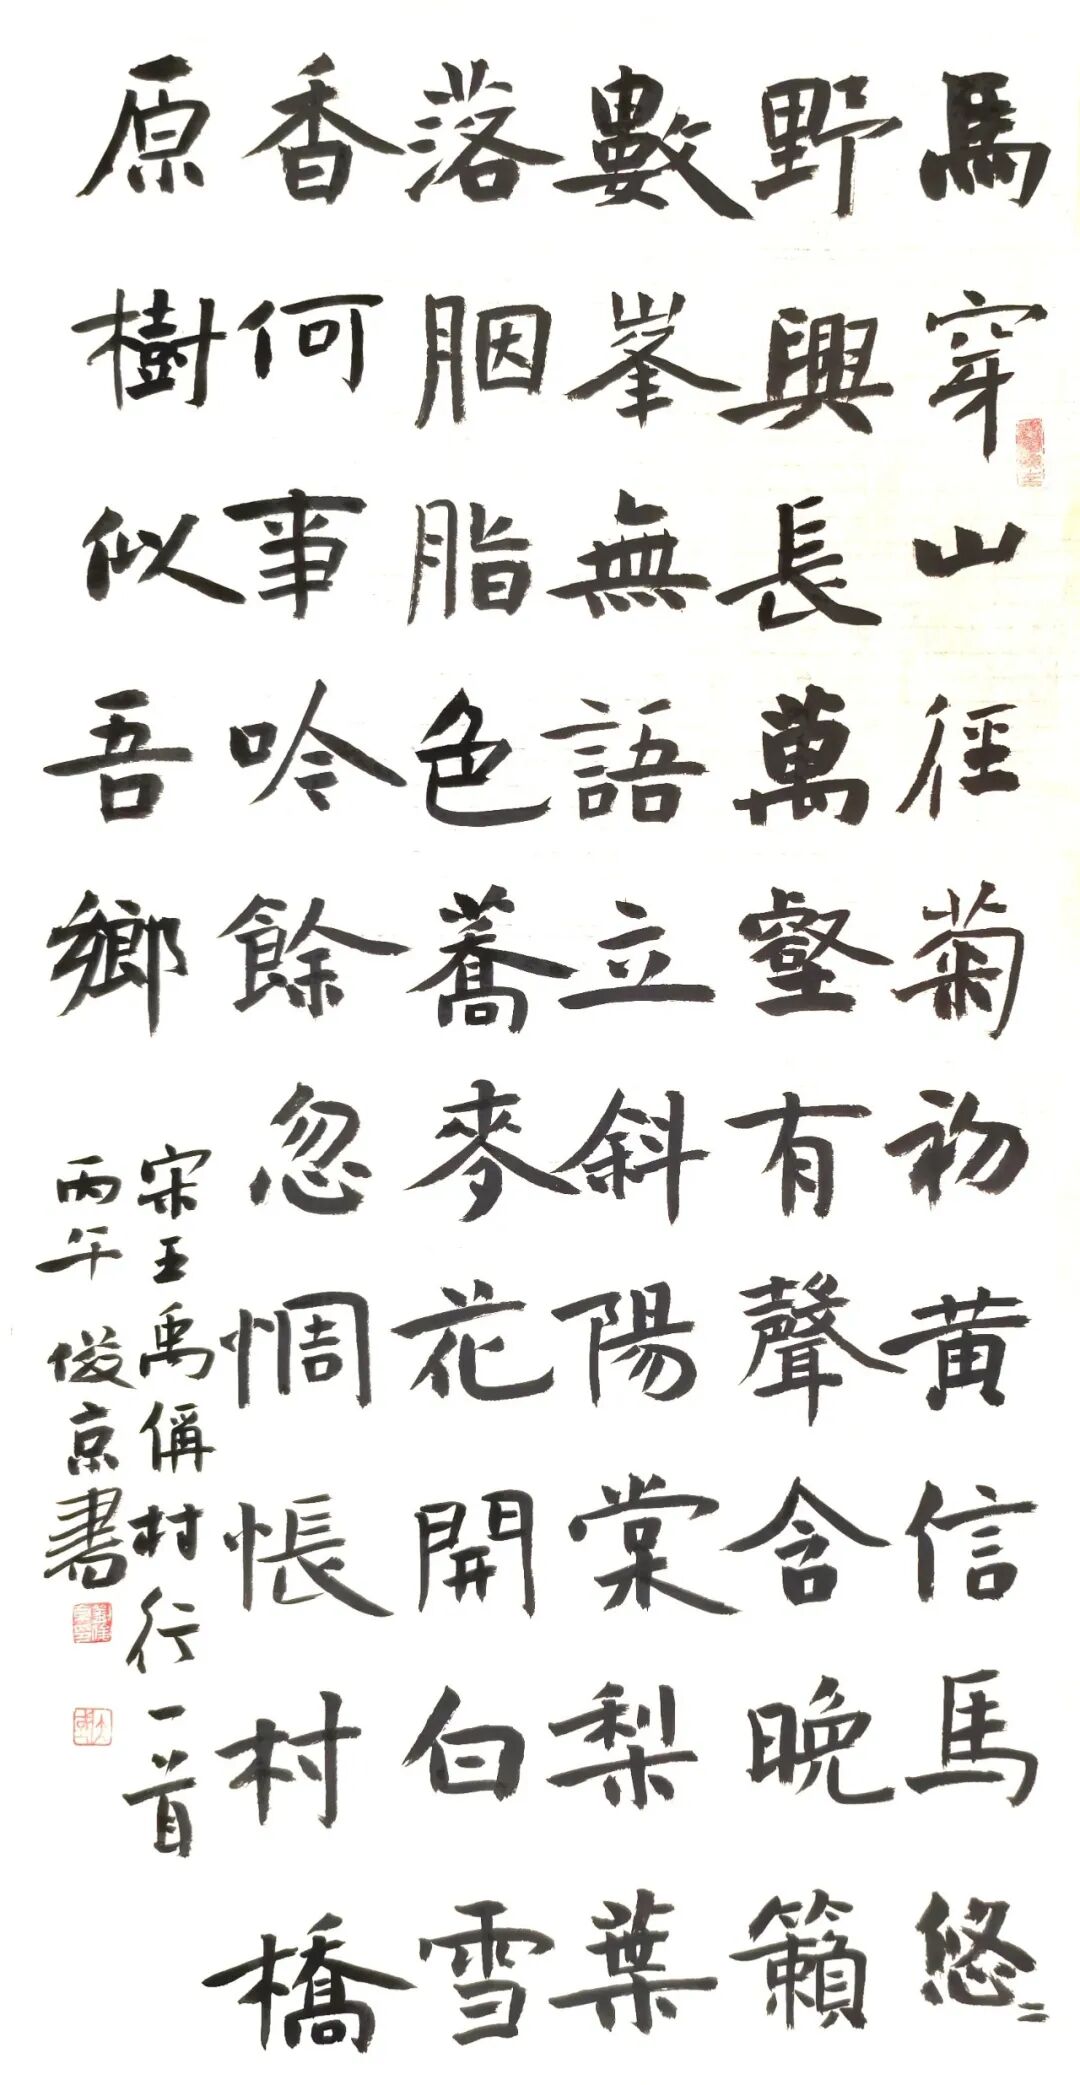 馬穿山徑菊初黃信馬悠〻
野興長萬壑有聲含晚籟
數峯無語立斜陽棠梨葉
落胭脂色蕎麥花開白雪
香何事吟餘忽惆悵村橋
原樹似吾鄉
宋王禹偁村行一首
丙午俊京書